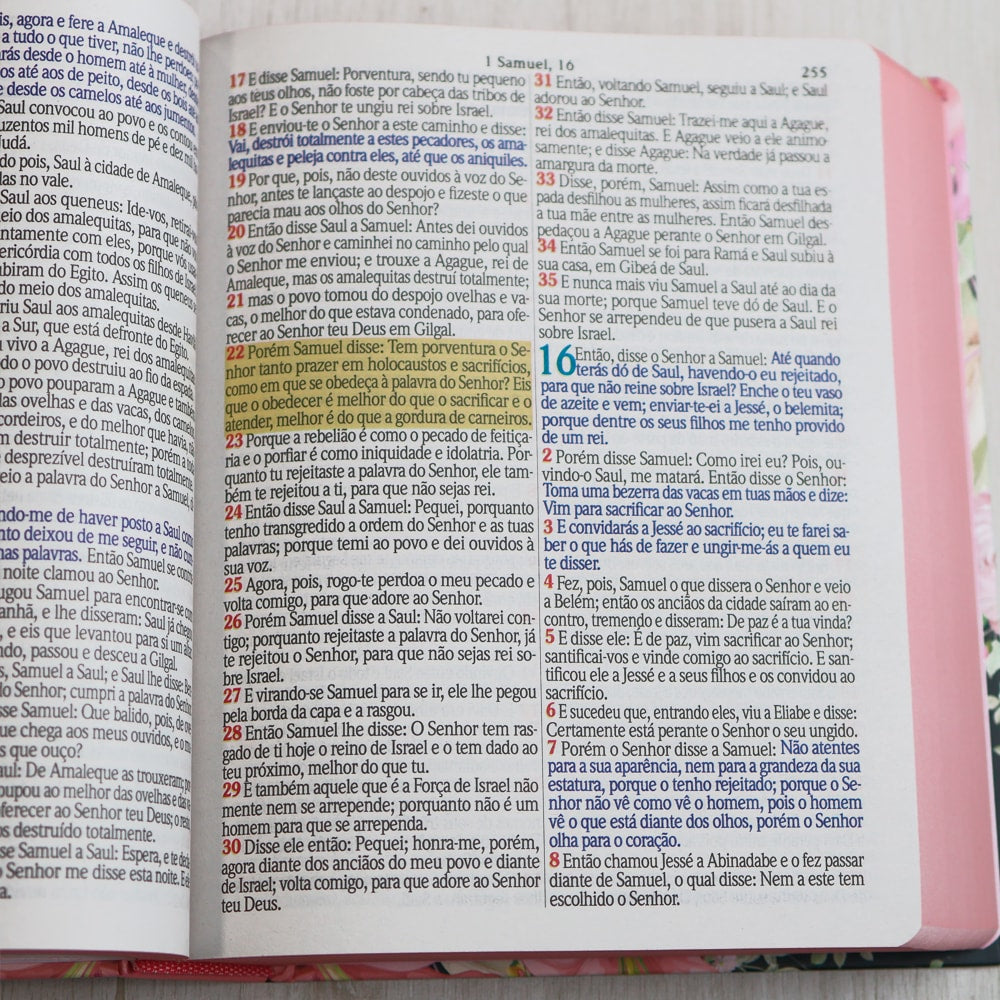 is, agora e fere a Amaleque e destrói
a tudo o que tiver, não lhe perdoes
rás desde o homem até à mulher, desde
os até aos de peito, desde os bois até
e desde os camelos até aos jumentos.
Saul convocou ao povo e os contou
uzentos mil homens de pé e dez mil
udá.
do pois, Saul à cidade de Amaleque,
las no vale.
Saul aos queneus: Ide-vos, retirai
meio dos amalequitas, para que não
ntamente com eles, porque vós
ericórdia com todos os filhos de
ubiram do Egito. Assim os queneus
do meio dos amalequitas.
riu Saul aos amalequitas desde
a Sur, que está defronte do Egito.
vivo a Agague, rei dos amalequitas
do o povo destruiu ao fio da espada
o povo pouparam a Agague e também
das ovelhas e das vacas, dos
cordeiros, e do melhor que havia,
m destruir totalmente; porém a
desprezível destruíram totalmente
eio a palavra do Senhor a Samuel,
ndo-me de haver posto a Saul como
nto deixou de me seguir, e não
has palavras. Então Samuel se
noite clamou ao Senhor.
ugou Samuel para encontrar-se com
anhã, e lhe disseram: Saul já
e eis que levantou para si um
ndo, passou e desceu a Gilgal.
s, Samuel a Saul; e Saul lhe disse:
do Senhor; cumpri a palavra do Senhor
sse Samuel: Que balido, pois, de
ue chega aos meus ouvidos, e o
s que ouço?
aul: De Amaleque as trouxeram;
upou ao melhor das ovelhas e das
oferecer ao Senhor teu Deus; o
s destruído totalmente.
se Samuel a Saul: Espera, e te
o Senhor me disse esta noite. E
a.
1 Samuel, 16
255
17 E disse Samuel: Porventura, sendo tu pequeno
aos teus olhos, não foste por cabeça das tribos de
Israel? E o Senhor te ungiu rei sobre Israel.
18 E enviou-te o Senhor a este caminho e disse:
Vai, destrói totalmente a estes pecadores, os ama-
lequitas e peleja contra eles, até que os aniquiles.
19 Por que, pois, não deste ouvidos à voz do Se-
nhor, antes te lançaste ao despojo e fizeste o que
parecia mau aos olhos do Senhor?
20 Então disse Saul a Samuel: Antes dei ouvidos
à voz do Senhor e caminhei no caminho pelo qual
o Senhor me enviou; e trouxe a Agague, rei de
Amaleque, mas os amalequitas destruí totalmente;
21 mas o povo tomou do despojo ovelhas e va-
cas, o melhor do que estava condenado, para ofe-
recer ao Senhor teu Deus em Gilgal.
22 Porém Samuel disse: Tem porventura o Se-
nhor tanto prazer em holocaustos e sacrifícios,
como em que se obedeça à palavra do Senhor? Eis
que o obedecer é melhor do que o sacrificar e o
atender, melhor é do que a gordura de carneiros.
23 Porque a rebelião é como o pecado de feitiça-
ria e o porfiar é como iniquidade e idolatria. Por-
quanto tu rejeitaste a palavra do Senhor, ele tam-
bém te rejeitou a ti, para que não sejas rei.
24 Então disse Saul a Samuel: Pequei, porquanto
tenho transgredido a ordem do Senhor e as tuas
palavras; porque temi ao povo e dei ouvidos à
sua voz.
25 Agora, pois, rogo-te perdoa o meu pecado e
volta comigo, para que adore ao Senhor.
26 Porém Samuel disse a Saul: Não voltarei con-
tigo; porquanto rejeitaste a palavra do Senhor, já
te rejeitou o Senhor, para que não sejas rei so-
bre Israel.
27 E virando-se Samuel para se ir, ele lhe pegou
pela borda da capa e a rasgou.
28 Então Samuel lhe disse: O Senhor tem ras-
gado de ti hoje o reino de Israel e o tem dado ao
teu próximo, melhor do que tu.
29 E também aquele que é a Força de Israel não
mente nem se arrepende; porquanto não é um
homem para que se arrependa.
30 Disse ele então: Pequei; honra-me, porém,
agora diante dos anciãos do meu povo e diante
de Israel; volta comigo, para que adore ao Senhor
teu Deus.
31 Então, voltando Samuel, seguiu a Saul; e Saul
adorou ao Senhor.
32 Então disse Samuel: Trazei-me aqui a Agague,
rei dos amalequitas. E Agague veio a ele animo-
samente; e disse Agague: Na verdade já passou a
amargura da morte.
33 Disse, porém, Samuel: Assim como a tua es-
pada desfilhou as mulheres, assim ficará desfilhada
a tua mãe entre as mulheres. Então Samuel des-
pedaçou a Agague perante o Senhor em Gilgal.
34 Então Samuel se foi para Ramá e Saul subiu à
sua casa, em Gibeá de Saul.
35 E nunca mais viu Samuel a Saul até ao dia da
sua morte; porque Samuel teve dó de Saul. E o
Senhor se arrependeu de que pusera a Saul rei
sobre Israel.
16 Então, disse o Senhor a Samuel: Até quando
terás dó de Saul, havendo-o eu rejeitado,
para que não reine sobre Israel? Enche o teu vaso
de azeite e vem; enviar-te-ei a Jessé, o belemita;
porque dentre os seus filhos me tenho provido
de um rei.
2 Porém disse Samuel: Como irei eu? Pois, ou-
vindo-o Saul, me matará. Então disse o Senhor:
Toma uma bezerra das vacas em tuas mãos e dize:
Vim para sacrificar ao Senhor.
3 E convidarás a Jessé ao sacrifício; eu te farei sa-
ber o que hás de fazer e ungir-me-ás a quem eu
te disser.
4 Fez, pois, Samuel o que dissera o Senhor e veio
a Belém; então os anciãos da cidade saíram ao en-
contro, tremendo e disseram: De paz é a tua vinda?
5 E disse ele: É de paz, vim sacrificar ao Senhor;
santificai-vos e vinde comigo ao sacrifício. E san-
tificou ele a Jessé e a seus filhos e os convidou ao
sacrifício.
6 E sucedeu que, entrando eles, viu a Eliabe e disse:
Certamente está perante o Senhor o seu ungido.
7 Porém o Senhor disse a Samuel: Não atentes
para a sua aparência, nem para a grandeza da sua
estatura, porque o tenho rejeitado; porque o Se-
nhor não vê como vê o homem, pois o homem
vê o que está diante dos olhos, porém o Senhor
olha para o coração.
8 Então chamou Jessé a Abinadabe e o fez passar
diante de Samuel, o qual disse: Nem a este tem
escolhido o Senhor.